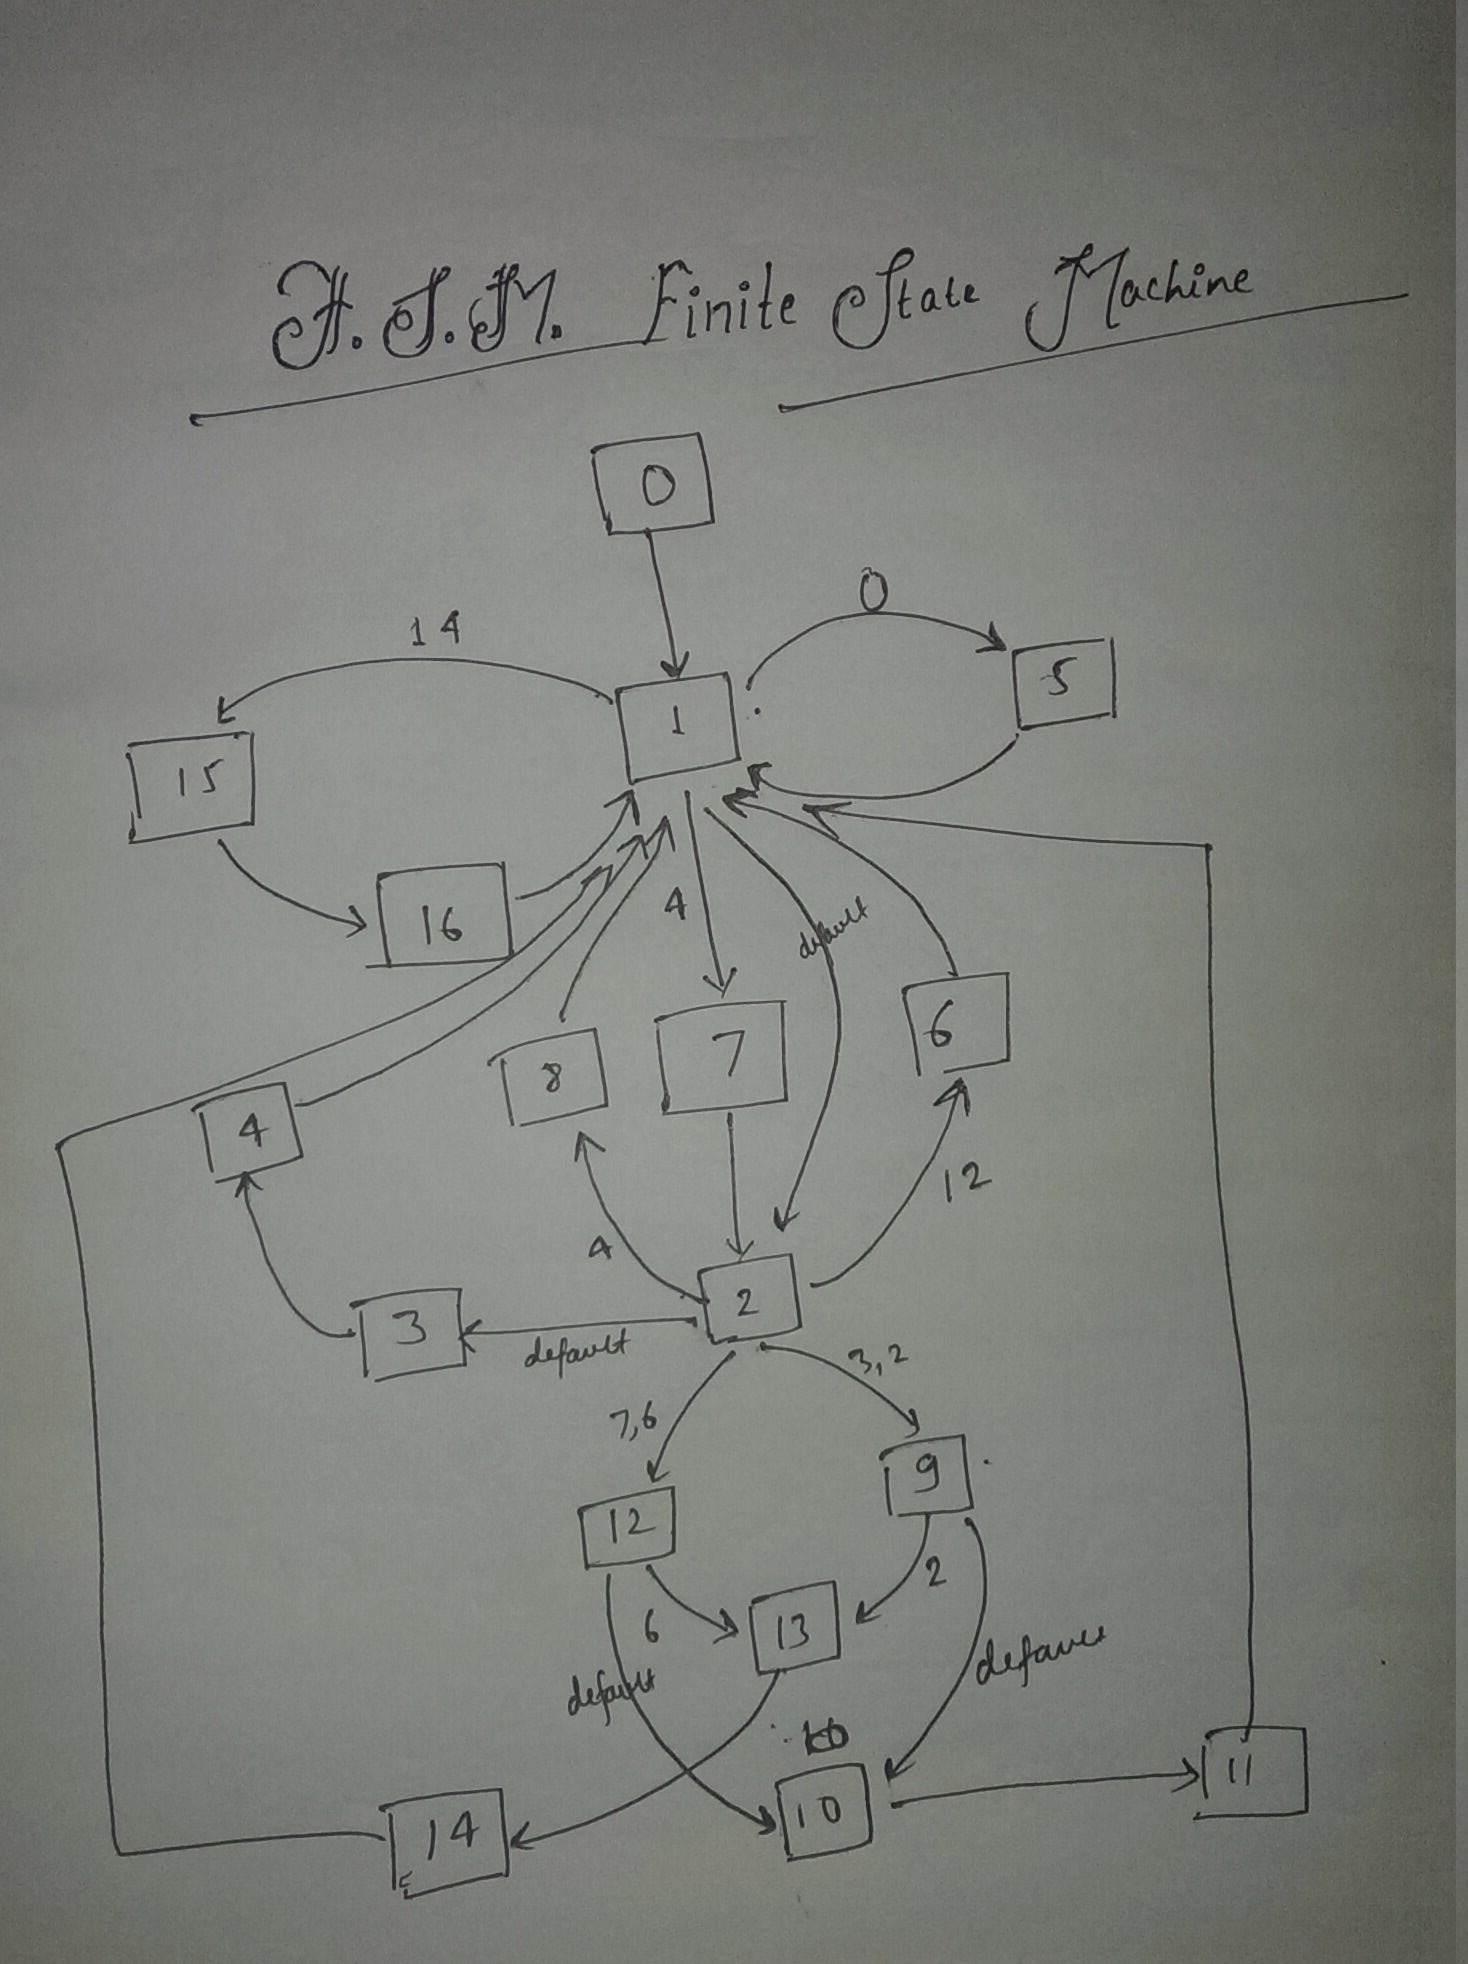 F.S.M. Finite State Machine
0
0
14
5
1
15
16
4
default
6
8
7
4
12
4
2
3
default
3,2
7,6
9
12
2
13
6
default
default
10
11
14